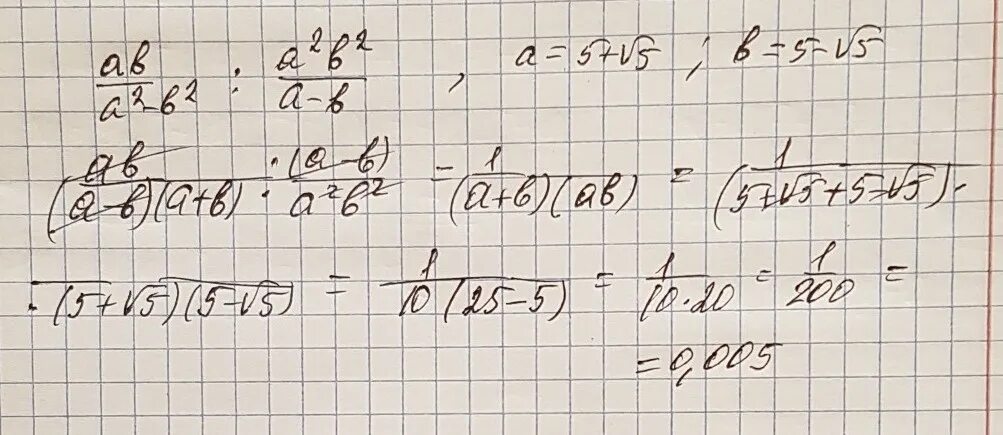 ab/(a²-b²) : a²b²/(a-b) , a=5+√5 ; b=5-√5
ab/((a-b)(a+b)) · (a-b)/(a²b²) = 1/((a+b)(ab)) = 1/((5+√5+5-√5)·
·(5+√5)(5-√5)) = 1/(10(25-5)) = 1/(10·20) = 1/200 =
=0,005